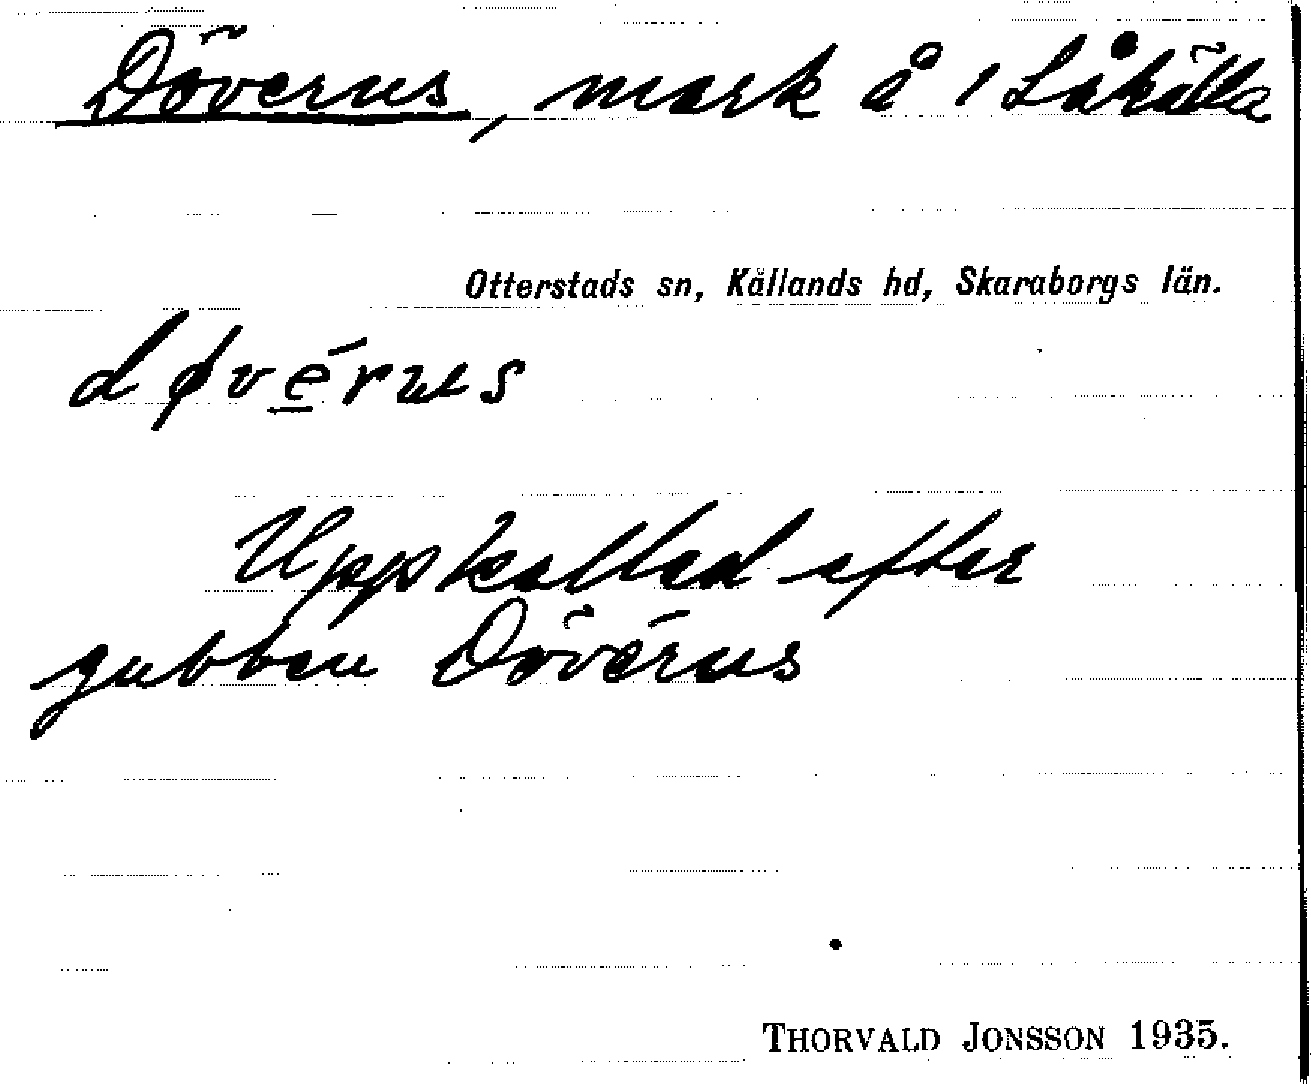 Döverus, mark å 1 Låkälla
Otterstads sn, Kållands hd, Skaraborgs län.
døvérus
Uppkallad efter
gubben Dövérus
THORVALD JONSSON 1935.